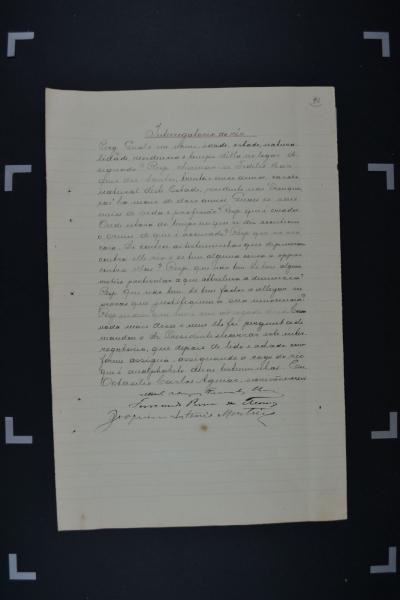 Interrogatorio do réo
Perg. Qual o seu nome, idade, estado, natura-
lidade, residencia e tempo della no logar de-
signado? Resp. chamar-se Fidelis Mar-
ques dos Santos, trinta e seis annos, casado
natural deste Estado, residente
ha mais de doze annos. Quaes os seus
meios de vida e profissão? Resp. que é creador.
Onde estava ao tempo em que se diz acontecer
o crime de que é accusado? Resp. que na sua
casa. Se conhece as testemunhas que depuzeram
contra elle réo e se tem alguma cousa a oppor
contra ellas? Resp. que não tem. Se tem algum
motivo particular a que attribua a denuncia?
Resp. Que não tem. Se tem factos a allegar ou
provas que justifiquem a sua innocencia?
Respondeu que
nada mais disse e nem lhe foi perguntado
mandou o Dr. Presidente encerrar este inter-
rogatorio, que depois de lido e achado con-
forme assigna, assignando a rogo do réo
que é analphabeto duas testemunhas. Eu
Octavilio Carlos Aguiar, escrivão escrevi

Fernando
Joaquim Antonio Martins